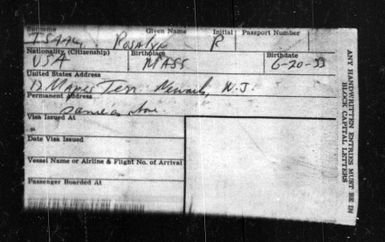 Surname Given Name Initial Passport Number
Rosalyn R
Nationality (Citizenship) Birthplace Birthdate
USA MASS 6-20-33
United States Address
17 Terr Newark, N.J.
Permanent Address
same as above
Visa Issued At
Date Visa Issued
Vessel Name or Airline & Flight No. of Arrival
Passenger Boarded At
ANY HANDWRITTEN ENTRIES MUST BE IN
BLOCK CAPITAL LETTERS